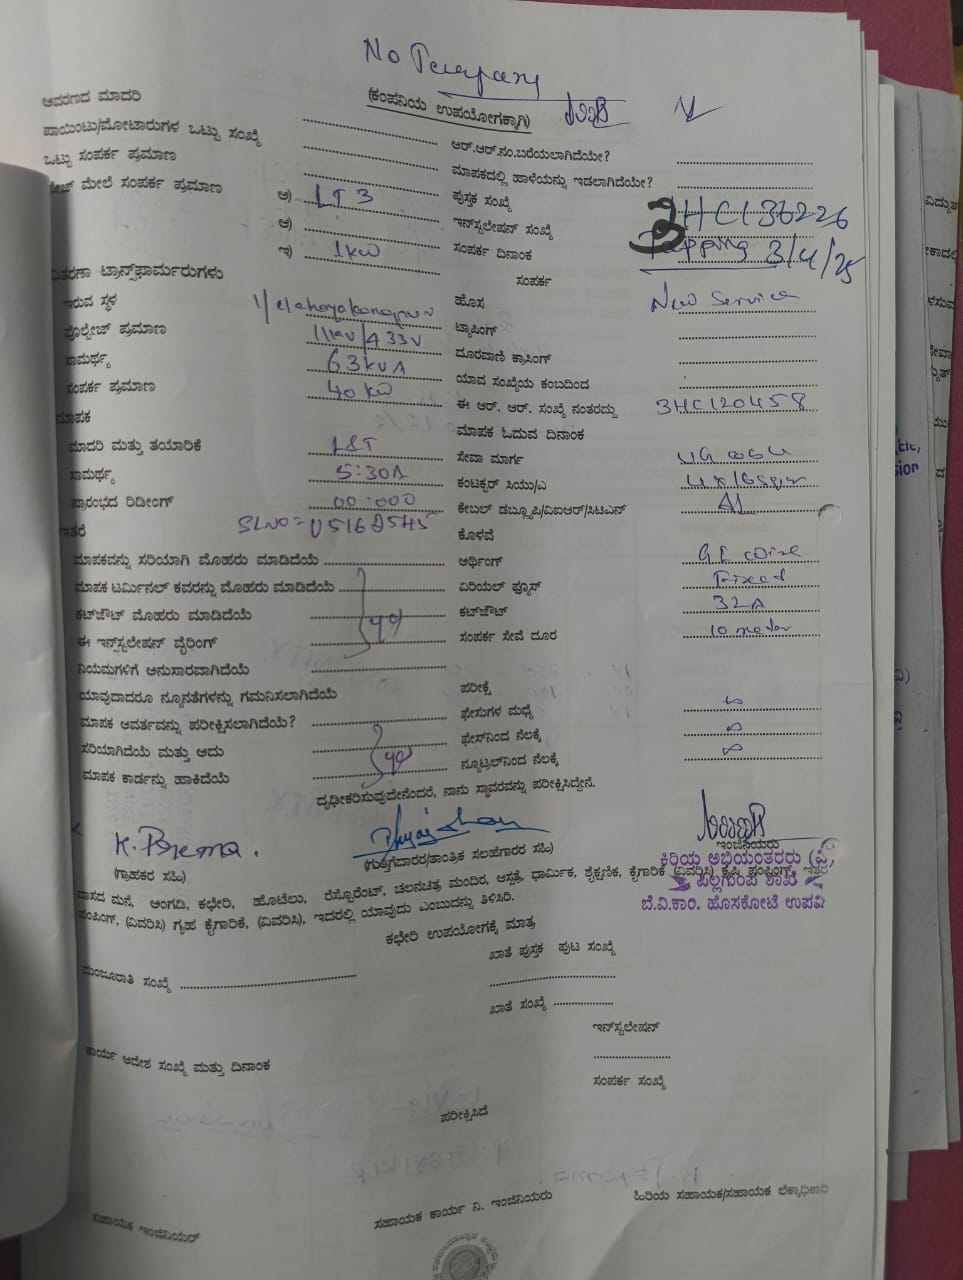 No
(ಕಂಪನಿಯ ಉಪಯೋಗಕ್ಕಾಗಿ)
ಆವರಣದ ಮಾದರಿ
ಪಾಯಿಂಟು/ಮೋಟಾರುಗಳ ಒಟ್ಟು ಸಂಖ್ಯೆ ಆರ್.ಆರ್.ನಂ.ಬರೆಯಲಾಗಿದೆಯೇ?
ಒಟ್ಟು ಸಂಪರ್ಕ ಪ್ರಮಾಣ ಮಾಪಕದಲ್ಲಿ ಹಾಳೆಯನ್ನು ಇಡಲಾಗಿದೆಯೇ?
ಮೇಲೆ ಸಂಪರ್ಕ ಪ್ರಮಾಣ ಅ) LT3 ಪುಸ್ತಕ ಸಂಖ್ಯೆ
ಆ) ಇನ್‌ಸ್ಟಲೇಷನ್ ಸಂಖ್ಯೆ 3HC136226
ಇ) 1kw ಸಂಪರ್ಕ ದಿನಾಂಕ Tapping 3/4/25
ಟ್ರಾನ್ಸ್‌ಫಾರ್ಮರುಗಳು ಸಂಪರ್ಕ
ಇರುವ ಸ್ಥಳ ಹೊಸ New Service
ವೊಲ್ಟೇಜ್ ಪ್ರಮಾಣ 11kv/433V ಟ್ಯಾಪಿಂಗ್
ಸಾಮರ್ಥ್ಯ 63kVA ದೂರವಾಣಿ ಕ್ರಾಸಿಂಗ್
ಸಂಪರ್ಕ ಪ್ರಮಾಣ 40kw ಯಾವ ಸಂಖ್ಯೆಯ ಕಂಬದಿಂದ
ಮಾಪಕ ಈ ಆರ್. ಆರ್. ಸಂಖ್ಯೆ ನಂತರದ್ದು 3HC120458
ಮಾಪಕ ಓದುವ ದಿನಾಂಕ
ಮಾದರಿ ಮತ್ತು ತಯಾರಿಕೆ L&T ಸೇವಾ ಮಾರ್ಗ UG
ಸಾಮರ್ಥ್ಯ 5-30A ಕಂಟಕ್ಟರ್ ಸಿಯು/ಎ
ಪ್ರಾರಂಭದ ರಿಡೀಂಗ್ 00.000 ಕೇಬಲ್ ಡಬ್ಲ್ಯೂಪಿ/ವಿಐಆರ್/ಸಿಟಿಎಸ್ Al
ಇತರೆ SLNO= ಕೊಳವೆ
ಮಾಪಕವನ್ನು ಸರಿಯಾಗಿ ಮೊಹರು ಮಾಡಿದೆಯೆ ಅರ್ಥಿಂಗ್ GI wire
ಮಾಪಕ ಟರ್ಮಿನಲ್ ಕವರನ್ನು ಮೊಹರು ಮಾಡಿದೆಯೆ ಏರಿಯಲ್ ಫ್ಯೂಸ್ Fixed
ಕಟ್‌ಔಟ್ ಮೊಹರು ಮಾಡಿದೆಯೆ ಕಟ್‌ಔಟ್ 32A
ಈ ಇನ್‌ಸ್ಟಲೇಷನ್ ವೈರಿಂಗ್ ಸಂಪರ್ಕ ಸೇವೆ ದೂರ 10 meter
ನಿಯಮಗಳಿಗೆ ಅನುಸಾರವಾಗಿದೆಯೆ
ಯಾವುದಾದರೂ ನ್ಯೂನತೆಗಳನ್ನು ಗಮನಿಸಲಾಗಿದೆಯೆ ಪರೀಕ್ಷೆ
ಮಾಪಕ ಆವರ್ತವನ್ನು ಪರೀಕ್ಷಿಸಲಾಗಿದೆಯೆ? ಫೇಸುಗಳ ಮಧ್ಯೆ ∞
ಸರಿಯಾಗಿದೆಯೆ ಮತ್ತು ಅದು ಫೇಸ್‌ನಿಂದ ನೆಲಕ್ಕೆ ∞
ಮಾಪಕ ಕಾರ್ಡನ್ನು ಹಾಕಿದೆಯೆ ನ್ಯೂಟ್ರಲ್‌ನಿಂದ ನೆಲಕ್ಕೆ ∞
ದೃಢೀಕರಿಸುವುದೇನೆಂದರೆ, ನಾನು ಸ್ಥಾವರವನ್ನು ಪರೀಕ್ಷಿಸಿದ್ದೇನೆ.
K. Prema.
(ಗ್ರಾಹಕರ ಸಹಿ) (ಗುತ್ತಿಗೆದಾರರ/ತಾಂತ್ರಿಕ ಸಲಹೆಗಾರರ ಸಹಿ) ಇಂಜಿನಿಯರು
ಕಿರಿಯ ಅಭಿಯಂತರರು (ವಿ)
ಪಿಲ್ಲಗುಂಪೆ ಶಾಖೆ
ಬೆ.ವಿ.ಕಂ. ಹೊಸಕೋಟೆ ಉಪವಿ
ವಾಸದ ಮನೆ, ಅಂಗಡಿ, ಕಛೇರಿ, ಹೊಟೆಲು, ರೆಸ್ಟೊರೆಂಟ್, ಚಲನಚಿತ್ರ ಮಂದಿರ, ಆಸ್ಪತ್ರೆ, ಧಾರ್ಮಿಕ, ಶೈಕ್ಷಣಿಕ, ಕೈಗಾರಿಕೆ (ವಿವರಿಸಿ) ಕೃಷಿ ಪಂಪಿಂಗ್, ಇತರೆ
ಪಂಪಿಂಗ್, (ವಿವರಿಸಿ) ಗೃಹ ಕೈಗಾರಿಕೆ, (ವಿವರಿಸಿ), ಇದರಲ್ಲಿ ಯಾವುದು ಎಂಬುದನ್ನು ತಿಳಿಸಿರಿ.
ಕಛೇರಿ ಉಪಯೋಗಕ್ಕೆ ಮಾತ್ರ
ಮಂಜೂರಾತಿ ಸಂಖ್ಯೆ ಖಾತೆ ಪುಸ್ತಕ ಪುಟ ಸಂಖ್ಯೆ
ಖಾತೆ ಸಂಖ್ಯೆ
ಇನ್‌ಸ್ಟಲೇಷನ್
ಕಾರ್ಯ ಆದೇಶ ಸಂಖ್ಯೆ ಮತ್ತು ದಿನಾಂಕ ಸಂಪರ್ಕ ಸಂಖ್ಯೆ
ಪರೀಕ್ಷಿಸಿದೆ
ಸಹಾಯಕ ಇಂಜಿನಿಯರ್ ಸಹಾಯಕ ಕಾರ್ಯ ನಿ. ಇಂಜಿನಿಯರು ಹಿರಿಯ ಸಹಾಯಕ/ಸಹಾಯಕ ಲೆಕ್ಕಾಧಿಕಾರಿ